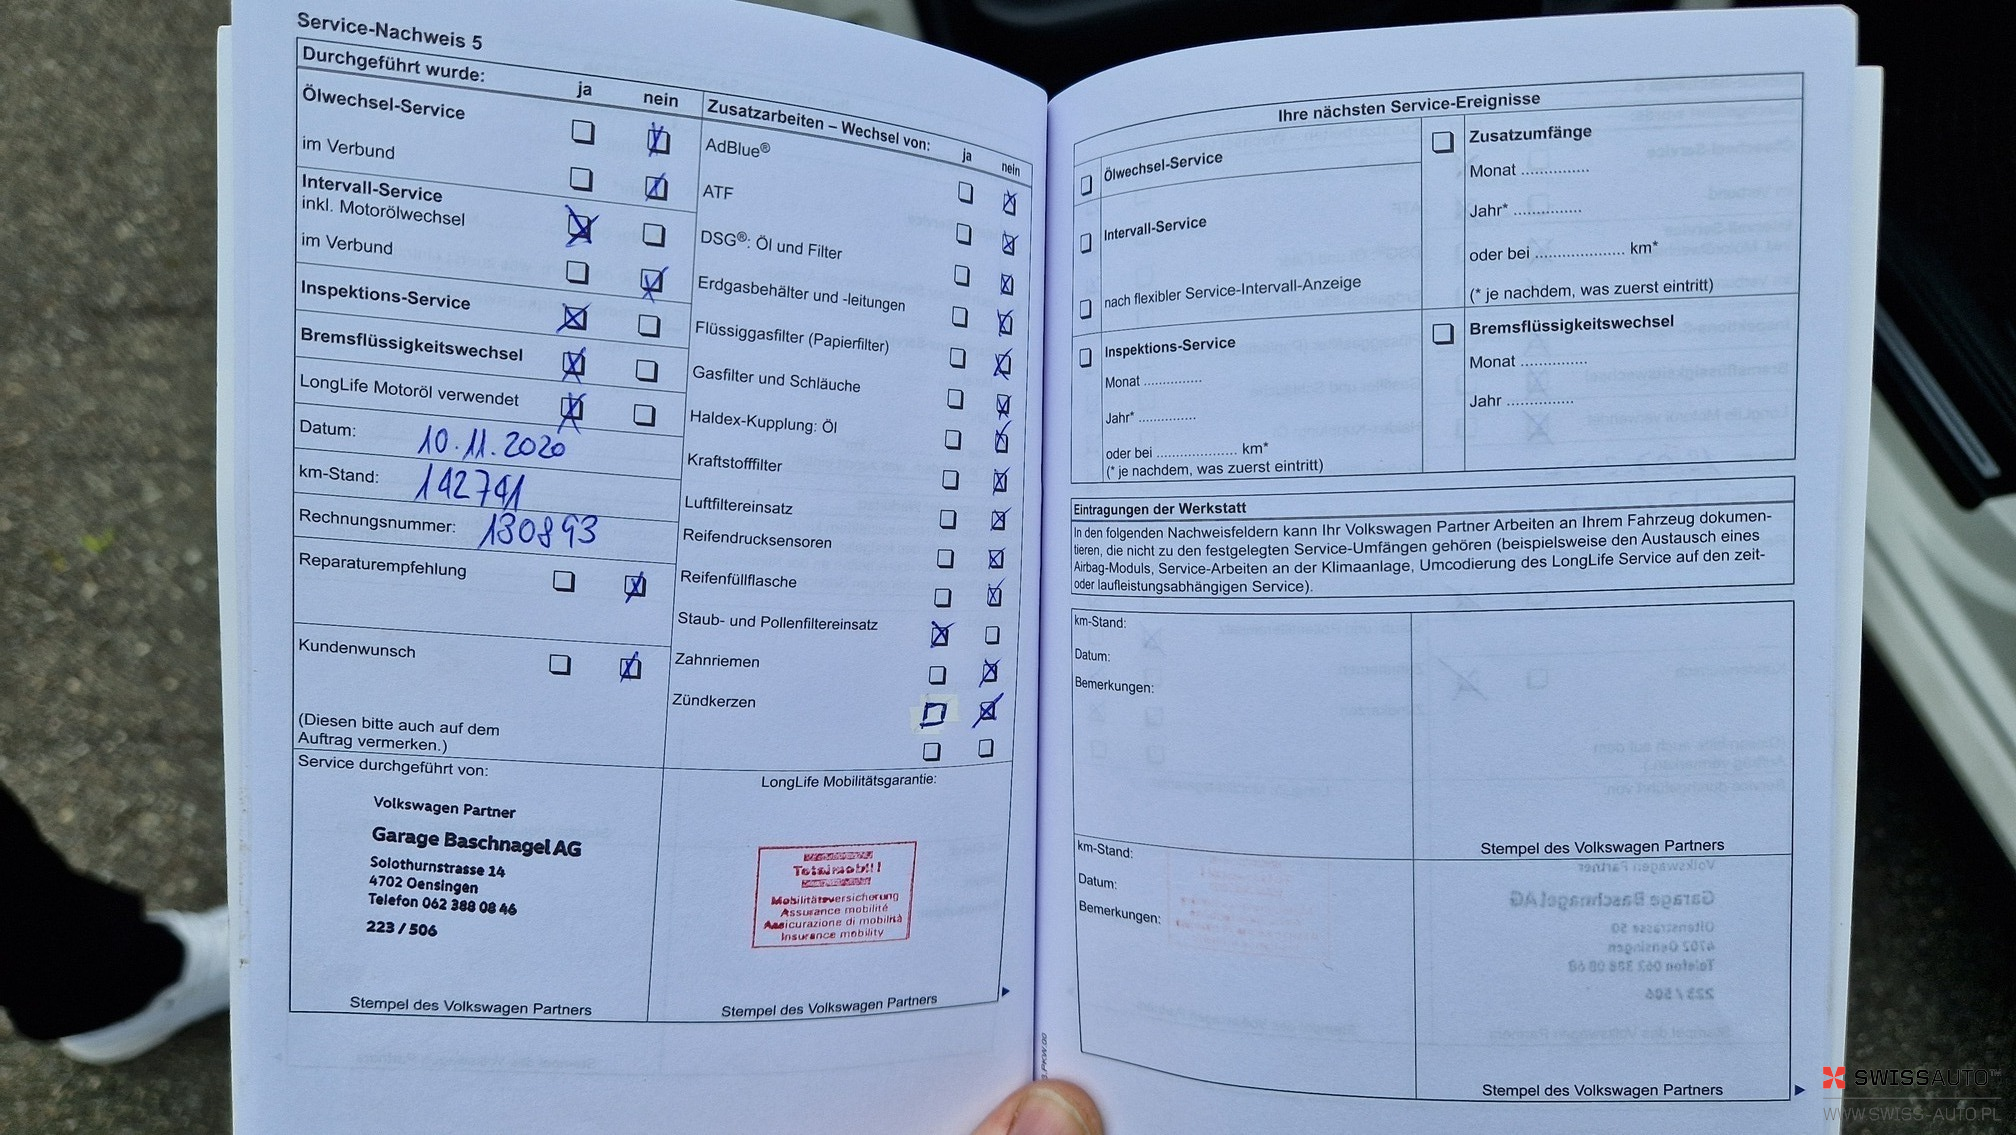 Service-Nachweis 5
Durchgeführt wurde:
ja nein
Ölwechsel-Service
im Verbund
Intervall-Service
inkl. Motorölwechsel
im Verbund
Inspektions-Service
Bremsflüssigkeitswechsel
LongLife Motoröl verwendet
Datum: 10.11.2020
km-Stand: 142741
Rechnungsnummer: 130893
Reparaturempfehlung
Kundenwunsch
(Diesen bitte auch auf dem
Auftrag vermerken.)
Zusatzarbeiten – Wechsel von:
ja nein
AdBlue®
ATF
DSG®: Öl und Filter
Erdgasbehälter und -leitungen
Flüssiggasfilter (Papierfilter)
Gasfilter und Schläuche
Haldex-Kupplung: Öl
Kraftstofffilter
Luftfiltereinsatz
Reifendrucksensoren
Reifenfüllflasche
Staub- und Pollenfiltereinsatz
Zahnriemen
Zündkerzen
Service durchgeführt von:
Volkswagen Partner
Garage Baschnagel AG
Solothurnstrasse 14
4702 Oensingen
Telefon 062 388 08 46
223 / 506
Stempel des Volkswagen Partners
LongLife Mobilitätsgarantie:
Totalmobil!
Mobilitätsversicherung
Assurance mobilité
Assicurazione di mobilità
Insurance mobility
Stempel des Volkswagen Partners
Ihre nächsten Service-Ereignisse
Ölwechsel-Service
Intervall-Service
nach flexibler Service-Intervall-Anzeige
Inspektions-Service
Monat ...............
Jahr* ...............
oder bei ..................... km*
(* je nachdem, was zuerst eintritt)
Zusatzumfänge
Monat ...............
Jahr* ...............
oder bei .................... km*
(* je nachdem, was zuerst eintritt)
Bremsflüssigkeitswechsel
Monat ...............
Jahr ...............
Eintragungen der Werkstatt
In den folgenden Nachweisfeldern kann Ihr Volkswagen Partner Arbeiten an Ihrem Fahrzeug dokumen-
tieren, die nicht zu den festgelegten Service-Umfängen gehören (beispielsweise den Austausch eines
Airbag-Moduls, Service-Arbeiten an der Klimaanlage, Umcodierung des LongLife Service auf den zeit-
oder laufleistungsabhängigen Service).
km-Stand:
Datum:
Bemerkungen:
Stempel des Volkswagen Partners
km-Stand:
Datum:
Bemerkungen:
Stempel des Volkswagen Partners
SWISSAUTO
WWW.SWISS-AUTO.PL